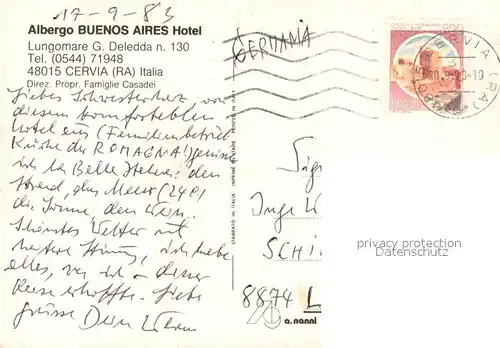 17-9-83
Albergo BUENOS AIRES Hotel
Lungomare G. Deledda n. 130
Tel. (0544) 71948
48015 CERVIA (RA) Italia
Direz. Propr. Famiglie Casadei
GERMANIA
300
CERVIA (RA)
Liebes Schwesterherz, von
diesem komfortablen
Hotel aus (Familienbetrieb
Küche der ROMAGNA!) genieße
ich la Bella Italia: den
Strand, das Meer (24°)
die Sonne, den Wein.
Schönstes Wetter und
heitere Stimmung, ich habe
alles, was ich - dieser
Reise erhoffte. Liebe
Grüsse Dein
STAMPATO IN ITALIA IMPRIMÉ EN ITALIE PRINTED IN ITALY
Sig
Inge W
SCHI
8874 L
a. nanni
privacy protection
Datenschutz